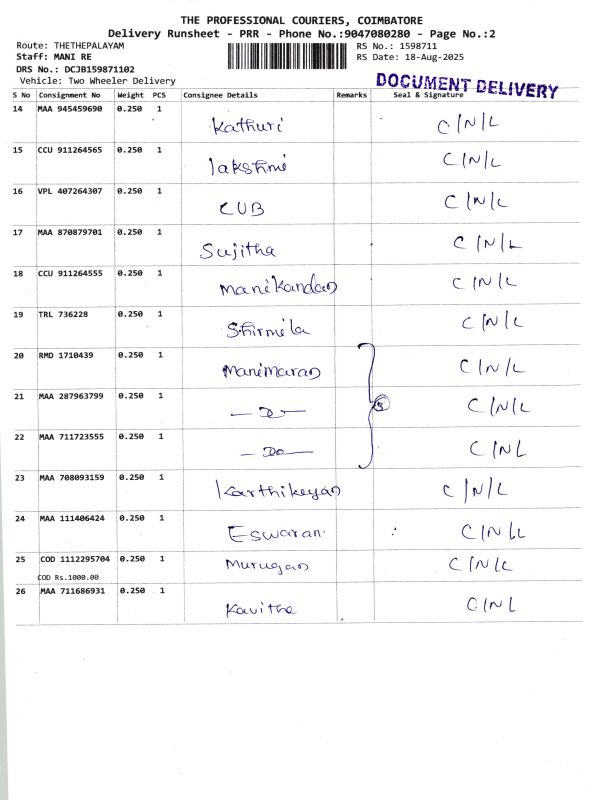 THE PROFESSIONAL COURIERS, COIMBATORE
Delivery Runsheet - PRR - Phone No.:9047080280 - Page No.:2
Route: THETHEPALAYAM RS No.: 1598711
Staff: MANI RE RS Date: 18-Aug-2025
DRS No.: DCJB159871102
Vehicle: Two Wheeler Delivery DOCUMENT DELIVERY
S No Consignment No Weight PCS Consignee Details Remarks Seal & Signature
14 MAA 945459690 0.250 1 Kathuri C/N/L
15 CCU 911264565 0.250 1 lakshmi C/N/L
16 VPL 407264307 0.250 1 CUB C/N/L
17 MAA 870879701 0.250 1 Sujitha C/N/L
18 CCU 911264555 0.250 1 Manikandan C/N/L
19 TRL 736228 0.250 1 Shirmila C/N/L
20 RMD 1710439 0.250 1 Manimaran C/N/L
21 MAA 287963799 0.250 1 — Do — 3 C/N/L
22 MAA 711723555 0.250 1 — Do — C/NL
23 MAA 708093159 0.250 1 Karthikeyan C/N/L
24 MAA 111406424 0.250 1 Eswaran C/N/L
25 COD 1112295704 0.250 1 Murugan C/N/L
COD Rs.1000.00
26 MAA 711686931 0.250 1 Kavitha C/N/L